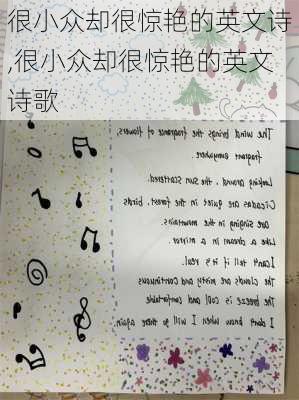 很小众却很惊艳的英文诗
,很小众却很惊艳的英文
诗歌
The wind brings the fragrance of flowers,
fragrant everywhere.
Looking around, the sun scattered.
Cicadas are quiet in the forest, birds
are singing in the mountains.
Like a dream in a mirror.
I can't tell if it's real.
The clouds are misty and continuous
The breeze is cool and comfortable
I don't know when I will go there again.